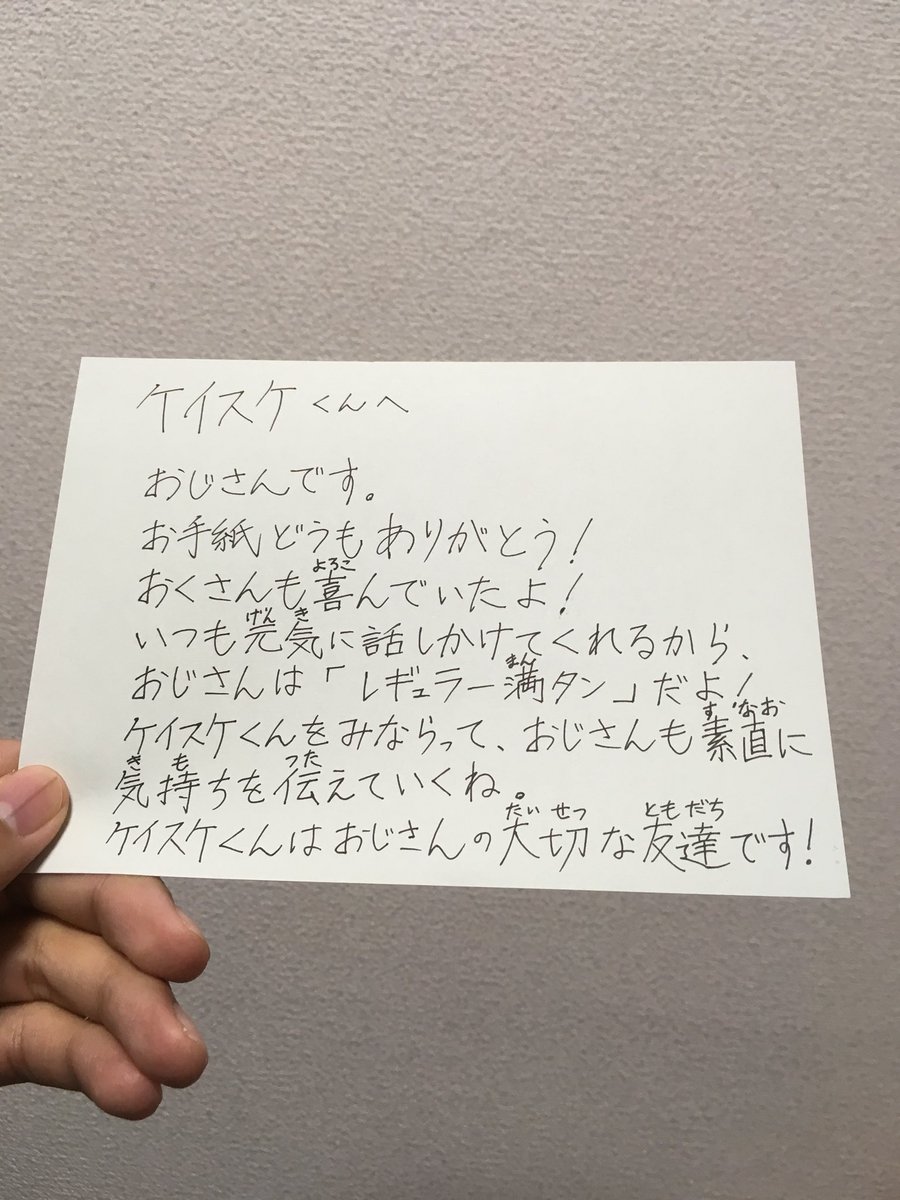 ケイスケくんへ
おじさんです。
お手紙どうもありがとう!
よろこ
おくさんも喜んでいたよ!
げん き
いつも元気に話しかけてくれるから、
まん
おじさんは「レギュラー満タン」だよ!
す なお
ケイスケくんをみならって、おじさんも素直に
き も つた
気持ちを伝えていくね。
たい せつ ともだち
ケイスケくんはおじさんの大切な友達です!